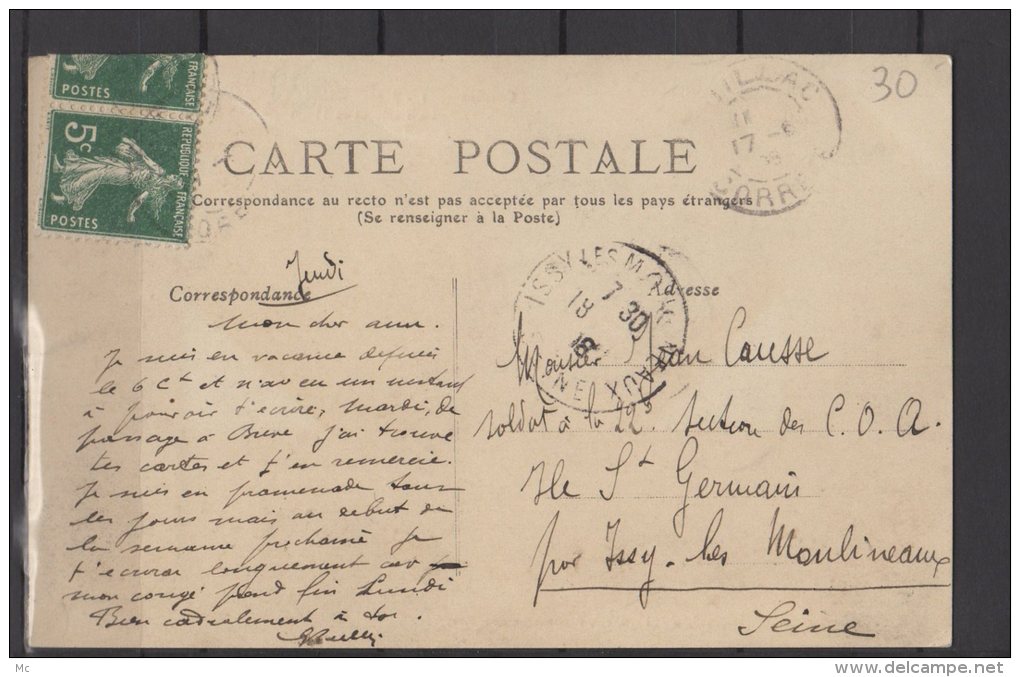 FRANÇAISE
POSTES
5c
REPUBLIQUE
FRANÇAISE
POSTES
30
ILLAC
17
CORRE
CARTE POSTALE
Correspondance au recto n'est pas acceptée par tous les pays étrangers
(Se renseigner à la Poste)
Jeudi
Correspondance
Mon cher ami.
Je suis en vacance depuis
le 6 Ct et n'avou un instant
à pouvoir t'ecrire, Mardi, de
passage à Brive j'ai trouvé
tes cartes et t'en remercie.
Je suis en promenade tous
les jours mais au debut de
la semaine prochaine je
t'ecrirai longuement car
mon congé prend fin Lundi
Bien cordialement à toi.
ISSY-LES-MOULINEAUX
7 30
18
Adresse
Monsieur Jean Causse
soldat à la 22e Section des C.O.A.
Ile St Germain
par Issy-les Moulineaux
Seine
Mc
delcampe.net